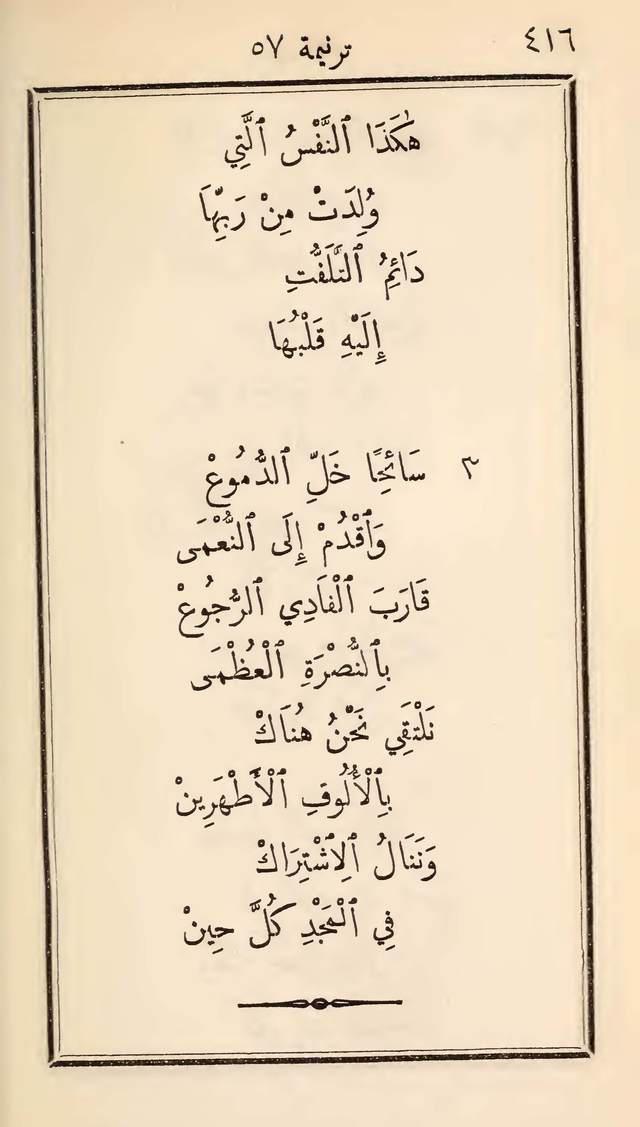 ٤١٦
ترنيمة ٥٧
هٰكَذَا ٱلنَّفْسُ ٱلَّتِي
وُلِدَتْ مِنْ رَبِّهَا
دَائِمُ ٱلتَّلَفُّتِ
إِلَيْهِ قَلْبُهَا
٣ سَائِحًا خَلِّ ٱلدُّمُوعْ
وَٱقْدُمْ إِلَى ٱلنُّعْمَى
قَارَبَ ٱلْفَادِي ٱلرُّجُوعْ
بِٱلنُّصْرَةِ ٱلْعُظْمَى
نَلْتَقِي نَحْنُ هُنَاكْ
بِٱلْأُلُوفِ ٱلْأَطْهَرِينْ
وَنَنَالُ ٱلِٱشْتِرَاكْ
فِي ٱلْمَجْدِ كُلَّ حِينْ